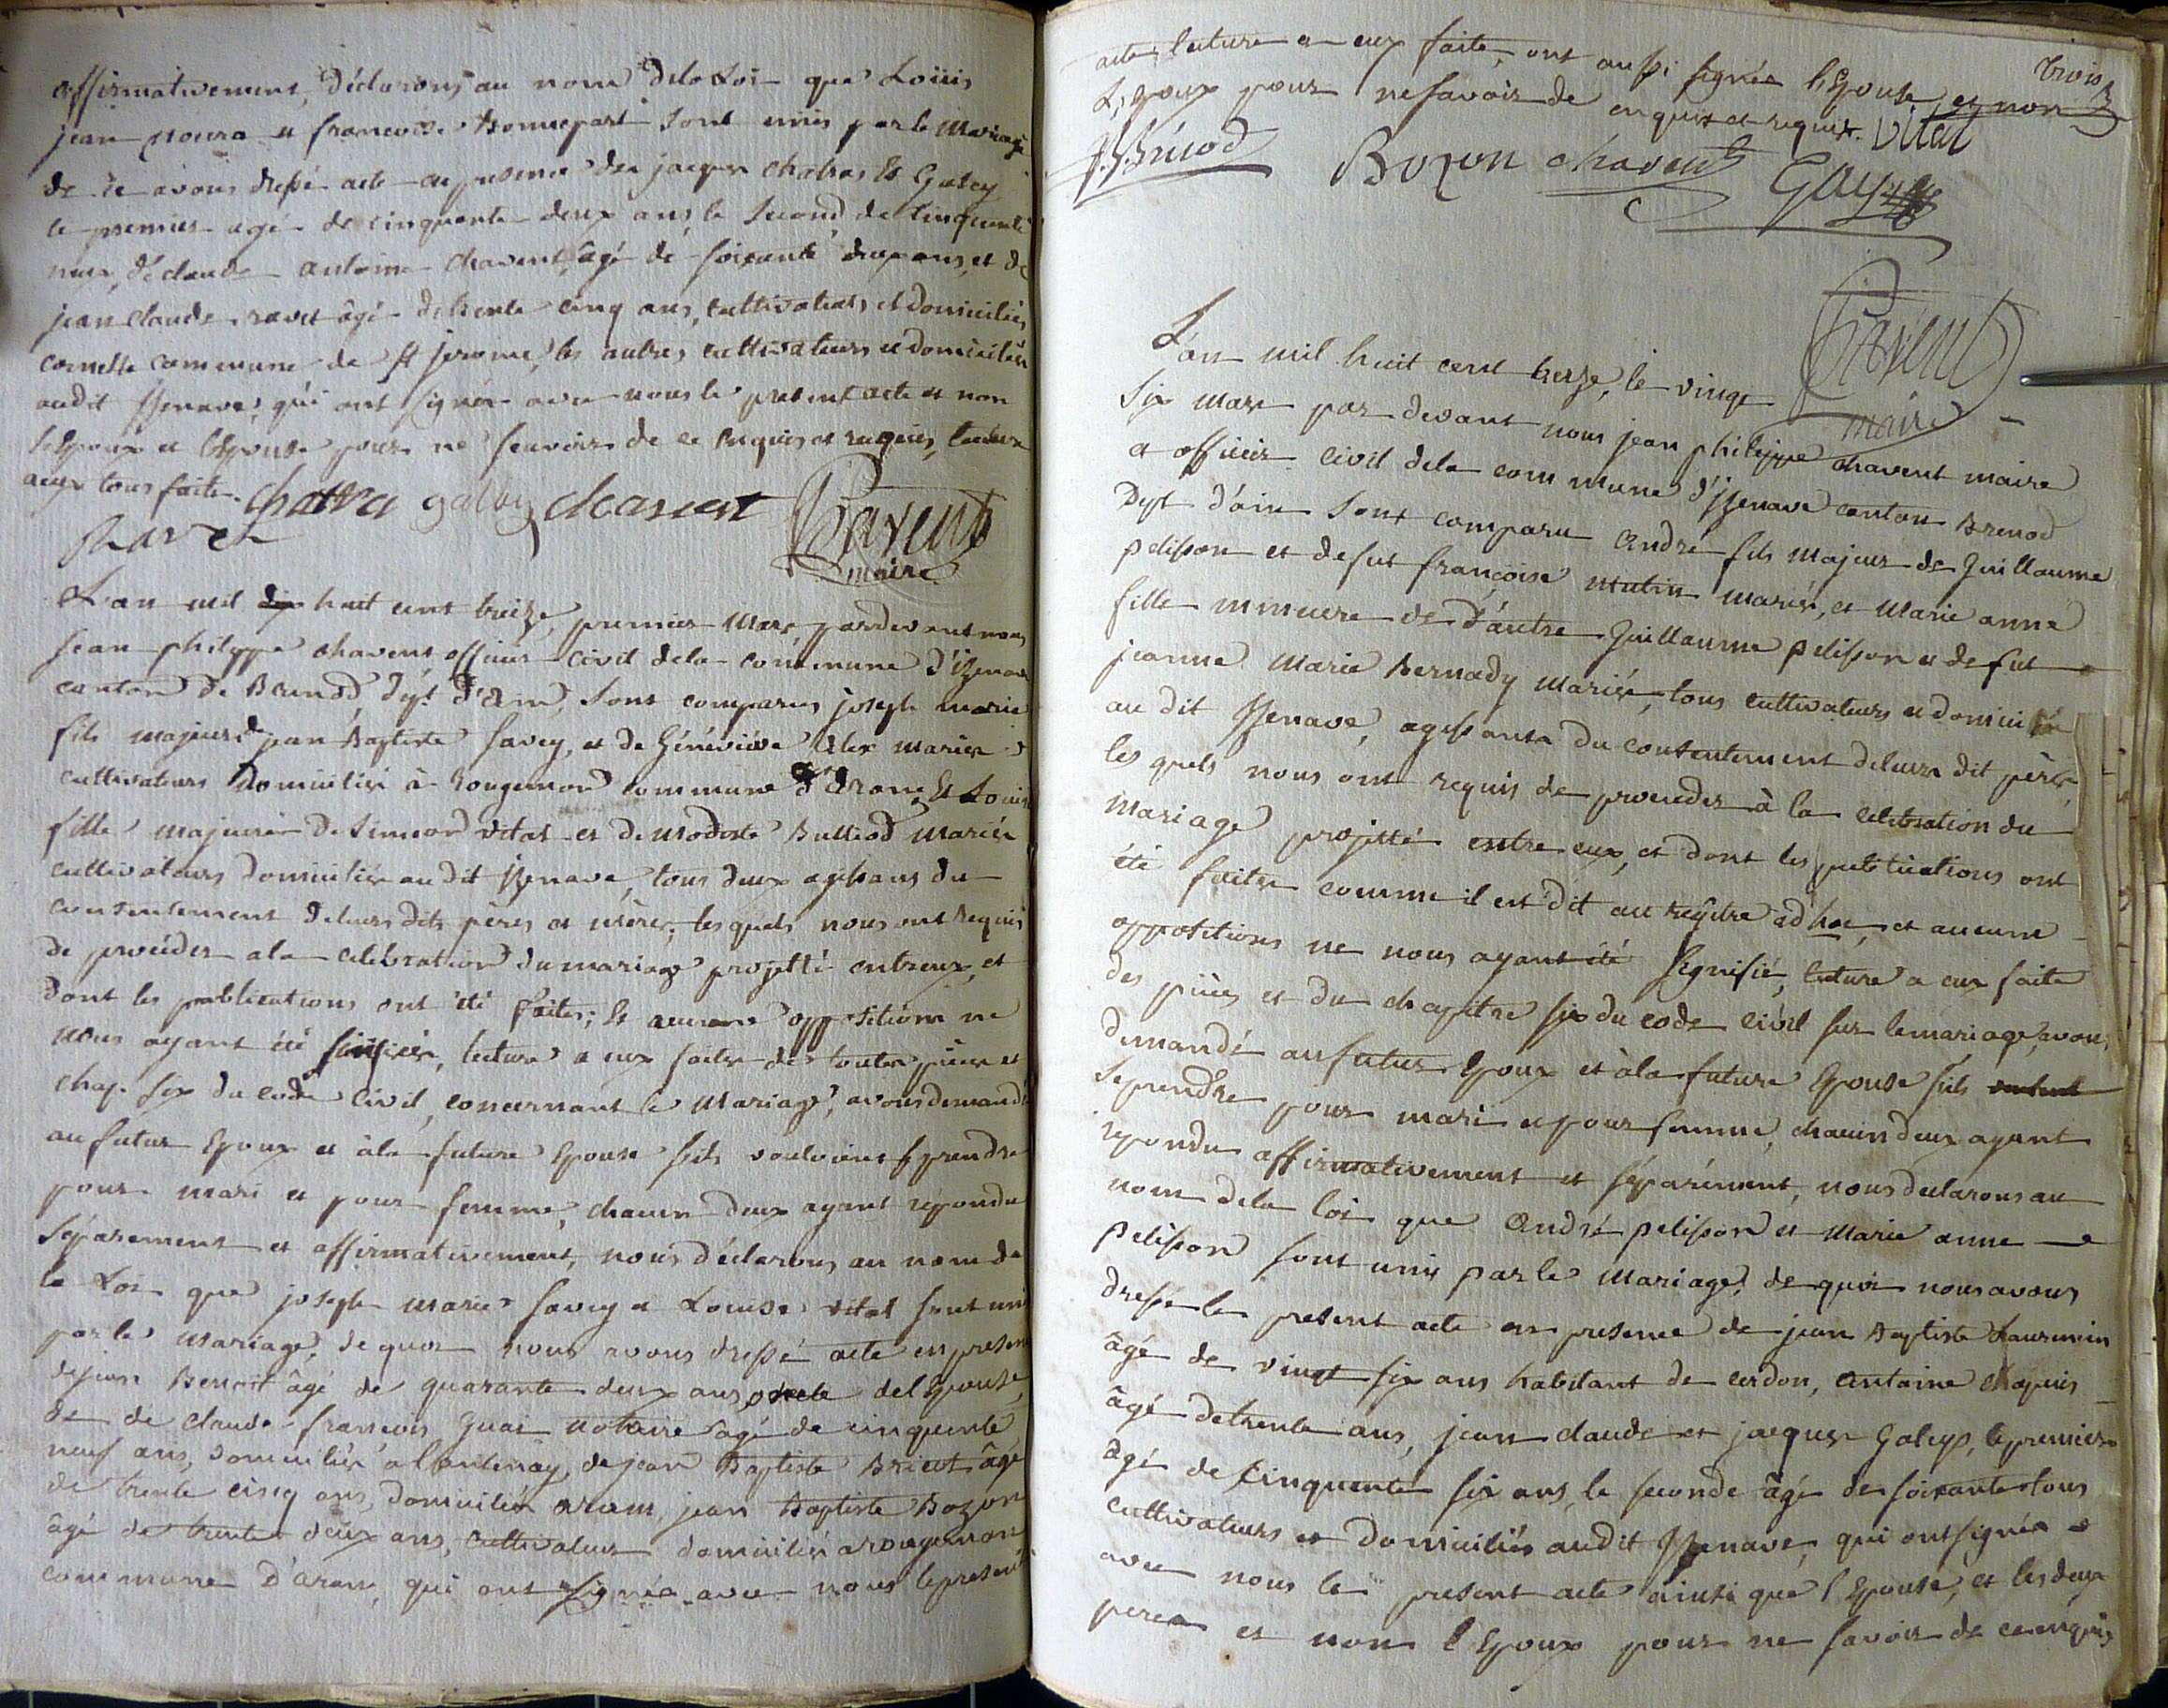 affirmativement, déclarons au nom dela Loi que Loüis
jean noura et francoise Bonnepart sont unis par le Mariage
de ce avons dressé acte en presence de jacques chatras et Galey
le premier agé de cinquante deux ans le second de cinquante
neuf, de claude antoine chavent, âgé de soixante deux ans, et de
jean claude ravet âgé de trente cinq ans, cultivateurs et domiciliés
cornelle commune de St jerome, les autres cultivateurs et domiciliés
audit Izenave, qui ont signés avec nous le present acte et non
l'Epoux et l'Epouse pour ne scavoir de ce enquis et requis, lecture
a eux tous faite. chatra galey chavent
Ravet Chavent
maire
L'an mil huit cent treize, premier Mars, pardevant nous
jean philippe chavent officier civil dela commune d'izenave
canton de Brenod, dépt d'Ain, sont comparus joseph marie
fils majeur de jean Baptiste savey, et de Géneviève Alex mariés
cultivateurs Domiciliés à Rougemon commune d'Arane, Et Louise
fille majeure de Simeon vital et de modeste Bulliod mariés
cultivateurs domiciliés au dit Izenave, tous deux agissans du
consentement deleurs dits pères et mères, lesquels nous ont requis
de procéder ala célébration du mariage projetté entreux, et
dont les publications ont été faites; et aucune opposition ne
nous ayant été signifiée, lecture a eux faite de toutes pièces et
chap. six du code civil, concernant le Mariage, avons demandé
au futur Epoux et àla future Epouse sils vouloient se prendre
pour mari et pour femme, chacun deux ayant répondu
séparement et affirmativement, nous déclarons au nom de
la Loi que joseph marie savey et Louise vital sont unis
par le mariage, de quoi nous avons dressé acte en presence
de jean Benoit âgé de quarante deux ans, oncle de l'Epouse,
de claude francois Guai notaire âgé de cinquante
neuf ans, domiciliés a Lantenay, de jean Baptiste Brient âgé
de trente cinq ans, domicilié aram, jean Baptiste Bozon
âgé de trente deux ans, cultivateur domiciliés a rougemon
commune D'aran, qui ont signés avec nous le present
trois
acte, lecture a eux faite, ont aussi signés l'Epouse, et non
L'Epoux pour ne savoir de ce enquis et requis. Vital
J. Bénod Bozon chavent Guy
Chavent
maire
L'an mil huit cent treize, le vingt
six mars par devant nous jean philippe chavent maire
et officier civil dela commune d'Izenave canton Brenod
Dept d'ain sont comparu André fils majeur de Guillaume
pelisson et defut françoise Mutin mariés, et Marie anne
fille mineure de d'autre Guillaume pelisson et defut
jeanne Marie Bernady mariés, tous cultivateurs et domiciliés
au dit Izenave, agissants du consentement deleurs dit pères,
les quels nous ont requis de proceder à la celebration du
mariage projetté entre eux, et dont les publications ont
été faites comme il est dit au régitre ad hoc, et aucune
oppositions ne nous ayant été signifié, lecture a eux faite
des pièces et du chapitre six du code civil sur le mariage, avons
demandé au futur Epoux et àla future Epouse sils veulent
se prendre pour mari et pour femme, chacun deux ayant
repondu affirmativement et séparément, nous declarons au
nom dela loi que André pelisson et Marie anne
pelisson sont unis par le Mariage, de quoi nous avons
dressé le present acte en presence de jean Baptiste Laurencin
âgé de vingt six ans habitant de cerdon, antoine chapuis
âgé de trente ans, jean claude et jacques Galeys, le premier
âgé de cinquante six ans, le seconde âgé de soixante tous
cultivateurs et domiciliés audit Izenave, qui ont signés
avec nous le present acte ainsi que l'Epouse, et les deux
peres et non l'Epoux pour ne savoir de ce enquis